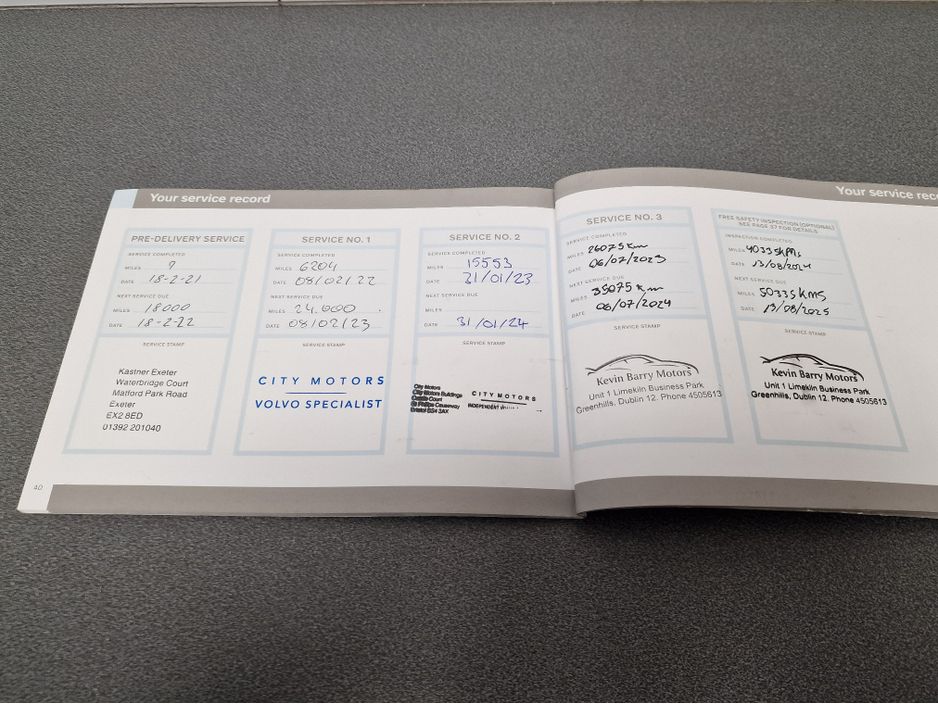 Your service record
PRE-DELIVERY SERVICE
SERVICE COMPLETED
MILES 9
DATE 18-2-21
NEXT SERVICE DUE
MILES 18000
DATE 18-2-22
SERVICE STAMP
Kastner Exeter
Waterbridge Court
Matford Park Road
Exeter
EX2 8ED
01392 201040
40
SERVICE NO. 1
SERVICE COMPLETED
MILES 6204
DATE 08/02/22
NEXT SERVICE DUE
MILES 24.000
DATE 08/02/23
SERVICE STAMP
CITY MOTORS
VOLVO SPECIALIST
SERVICE NO. 2
SERVICE COMPLETED
MILES 15553
DATE 31/01/23
NEXT SERVICE DUE
MILES
DATE 31/01/24
SERVICE STAMP
City Motors
City Motors Buildings
Court
St Philips Causeway
Bristol BS4 3AX
CITY MOTORS
INDEPENDENT
Your service reco
SERVICE NO. 3
SERVICE COMPLETED
MILES 26075 km
DATE 06/07/2023
NEXT SERVICE DUE
MILES 35075 km
DATE 06/07/2024
SERVICE STAMP
Kevin Barry Motors
Unit 1 Limekiln Business Park
Greenhills, Dublin 12. Phone 4505613
FREE SAFETY INSPECTION (OPTIONAL)
SEE PAGE 37 FOR DETAILS
INSPECTION COMPLETED
MILES 40335 kms
DATE 13/08/2024
NEXT SERVICE DUE
MILES 50335 kms
DATE 13/08/2025
SERVICE STAMP
Kevin Barry Motors
Unit 1 Limekiln Business Park
Greenhills, Dublin 12. Phone 4505613